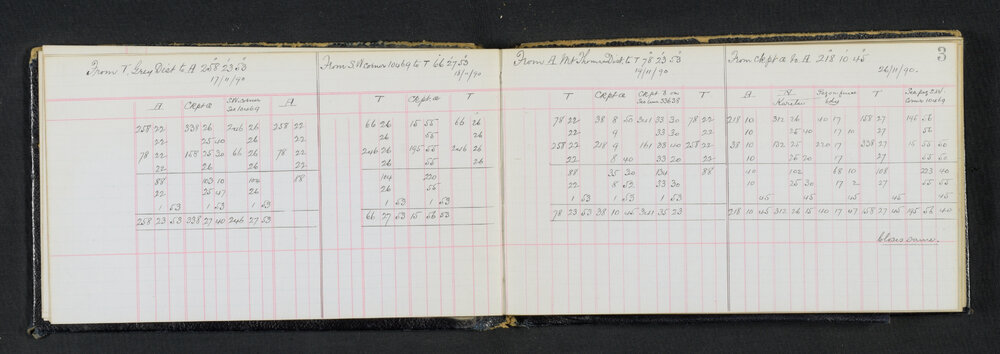 3
From T. Grey Dist to A 258° 23' 53"
17/11/90
A Ck pt æ S.W. corner A
258 22 338 26 246 26 258 22
22 25 40 26 22
78 22 158 25 30 66 26 78 22
22 26 26 22
88 103 10 104 88
22 25 47 26
1 53 1 53 1 53
258 23 53 338 27 40 246 27 53
From S.W. corner 10469 to T 66 27 53
18/11/90
T Ck pt æ T
66 26 15 55 66 26
26 55 26
246 26 195 55 246 26
26 55 26
104 220
26 55
1 53 1 53
66 27 53 15 56 53
From A Mt Thomas Dist. to T 78° 23' 53"
19/11/90
T Ck pt æ Ck pt T
78 22 38 8 50 341 33 30 78 22
22 9 33 30 22
258 22 218 9 161 33 40 258 22
22 8 40 33 20 22
88 35 30 134 88
22 8 52 33 30
1 53 1 53 1 53
78 23 53 38 10 45 341 35 23
From Ck pt æ to A 218° 10' 45"
26/11/90.
A N T
218 10 312 26 40 17 158 27 195 56
10 25 40 17 10 27 56
38 10 132 25 220 17 338 27 15 55 50
10 25 20 17 27 55 50
40 102 68 10 108 223 40
10 25 30 17 2 27 55 55
45 45 45 45 45
218 10 45 312 26 15 40 17 47 158 27 45 195 56 40
Closes same.